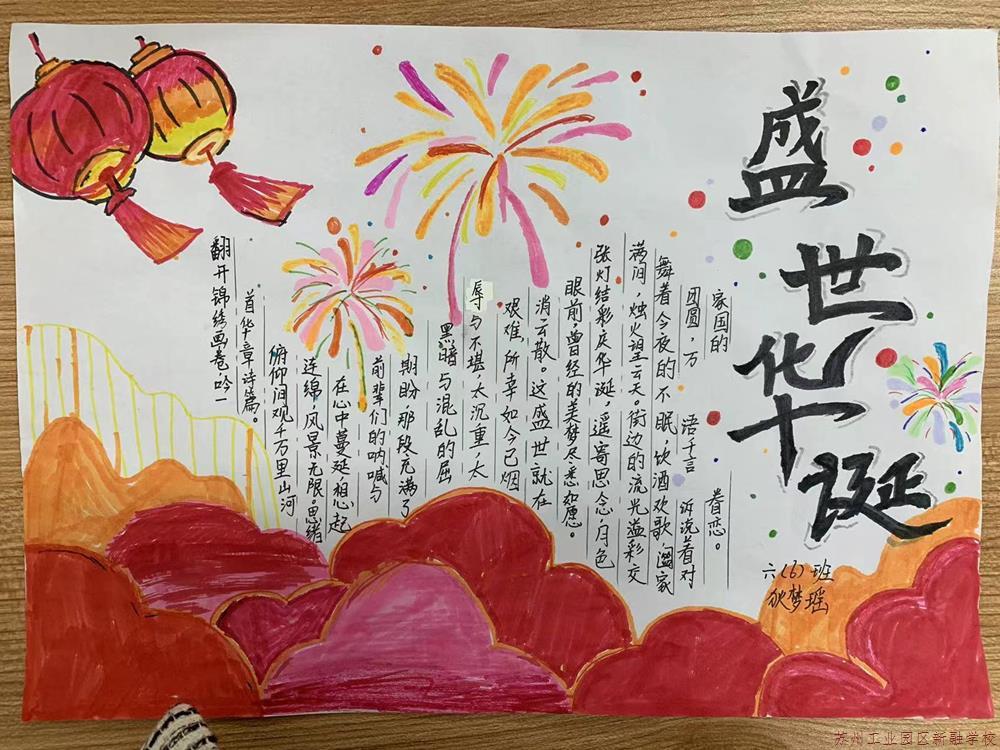 盛世华诞
六(6)班
狄梦瑶
翻开锦绣画卷,吟一
首华章诗篇。
俯仰间观千万里山河
连绵,风景无限。思绪
在心中蔓延,想起
前辈们的呐喊与
期盼,那段充满了
黑暗与混乱的屈
辱与不堪,太沉重,太
艰难,所幸如今已烟
消云散。这盛世就在
眼前,曾经的美梦尽悉如愿。
张灯结彩庆华诞,遥寄思念,月色
满间,烛火望云天。街边的流光溢彩交
舞着今夜的不眠,饮酒欢歌,阖家
团圆,万 语千言 诉说着对
家国的 眷恋。
苏州工业园区新融学校